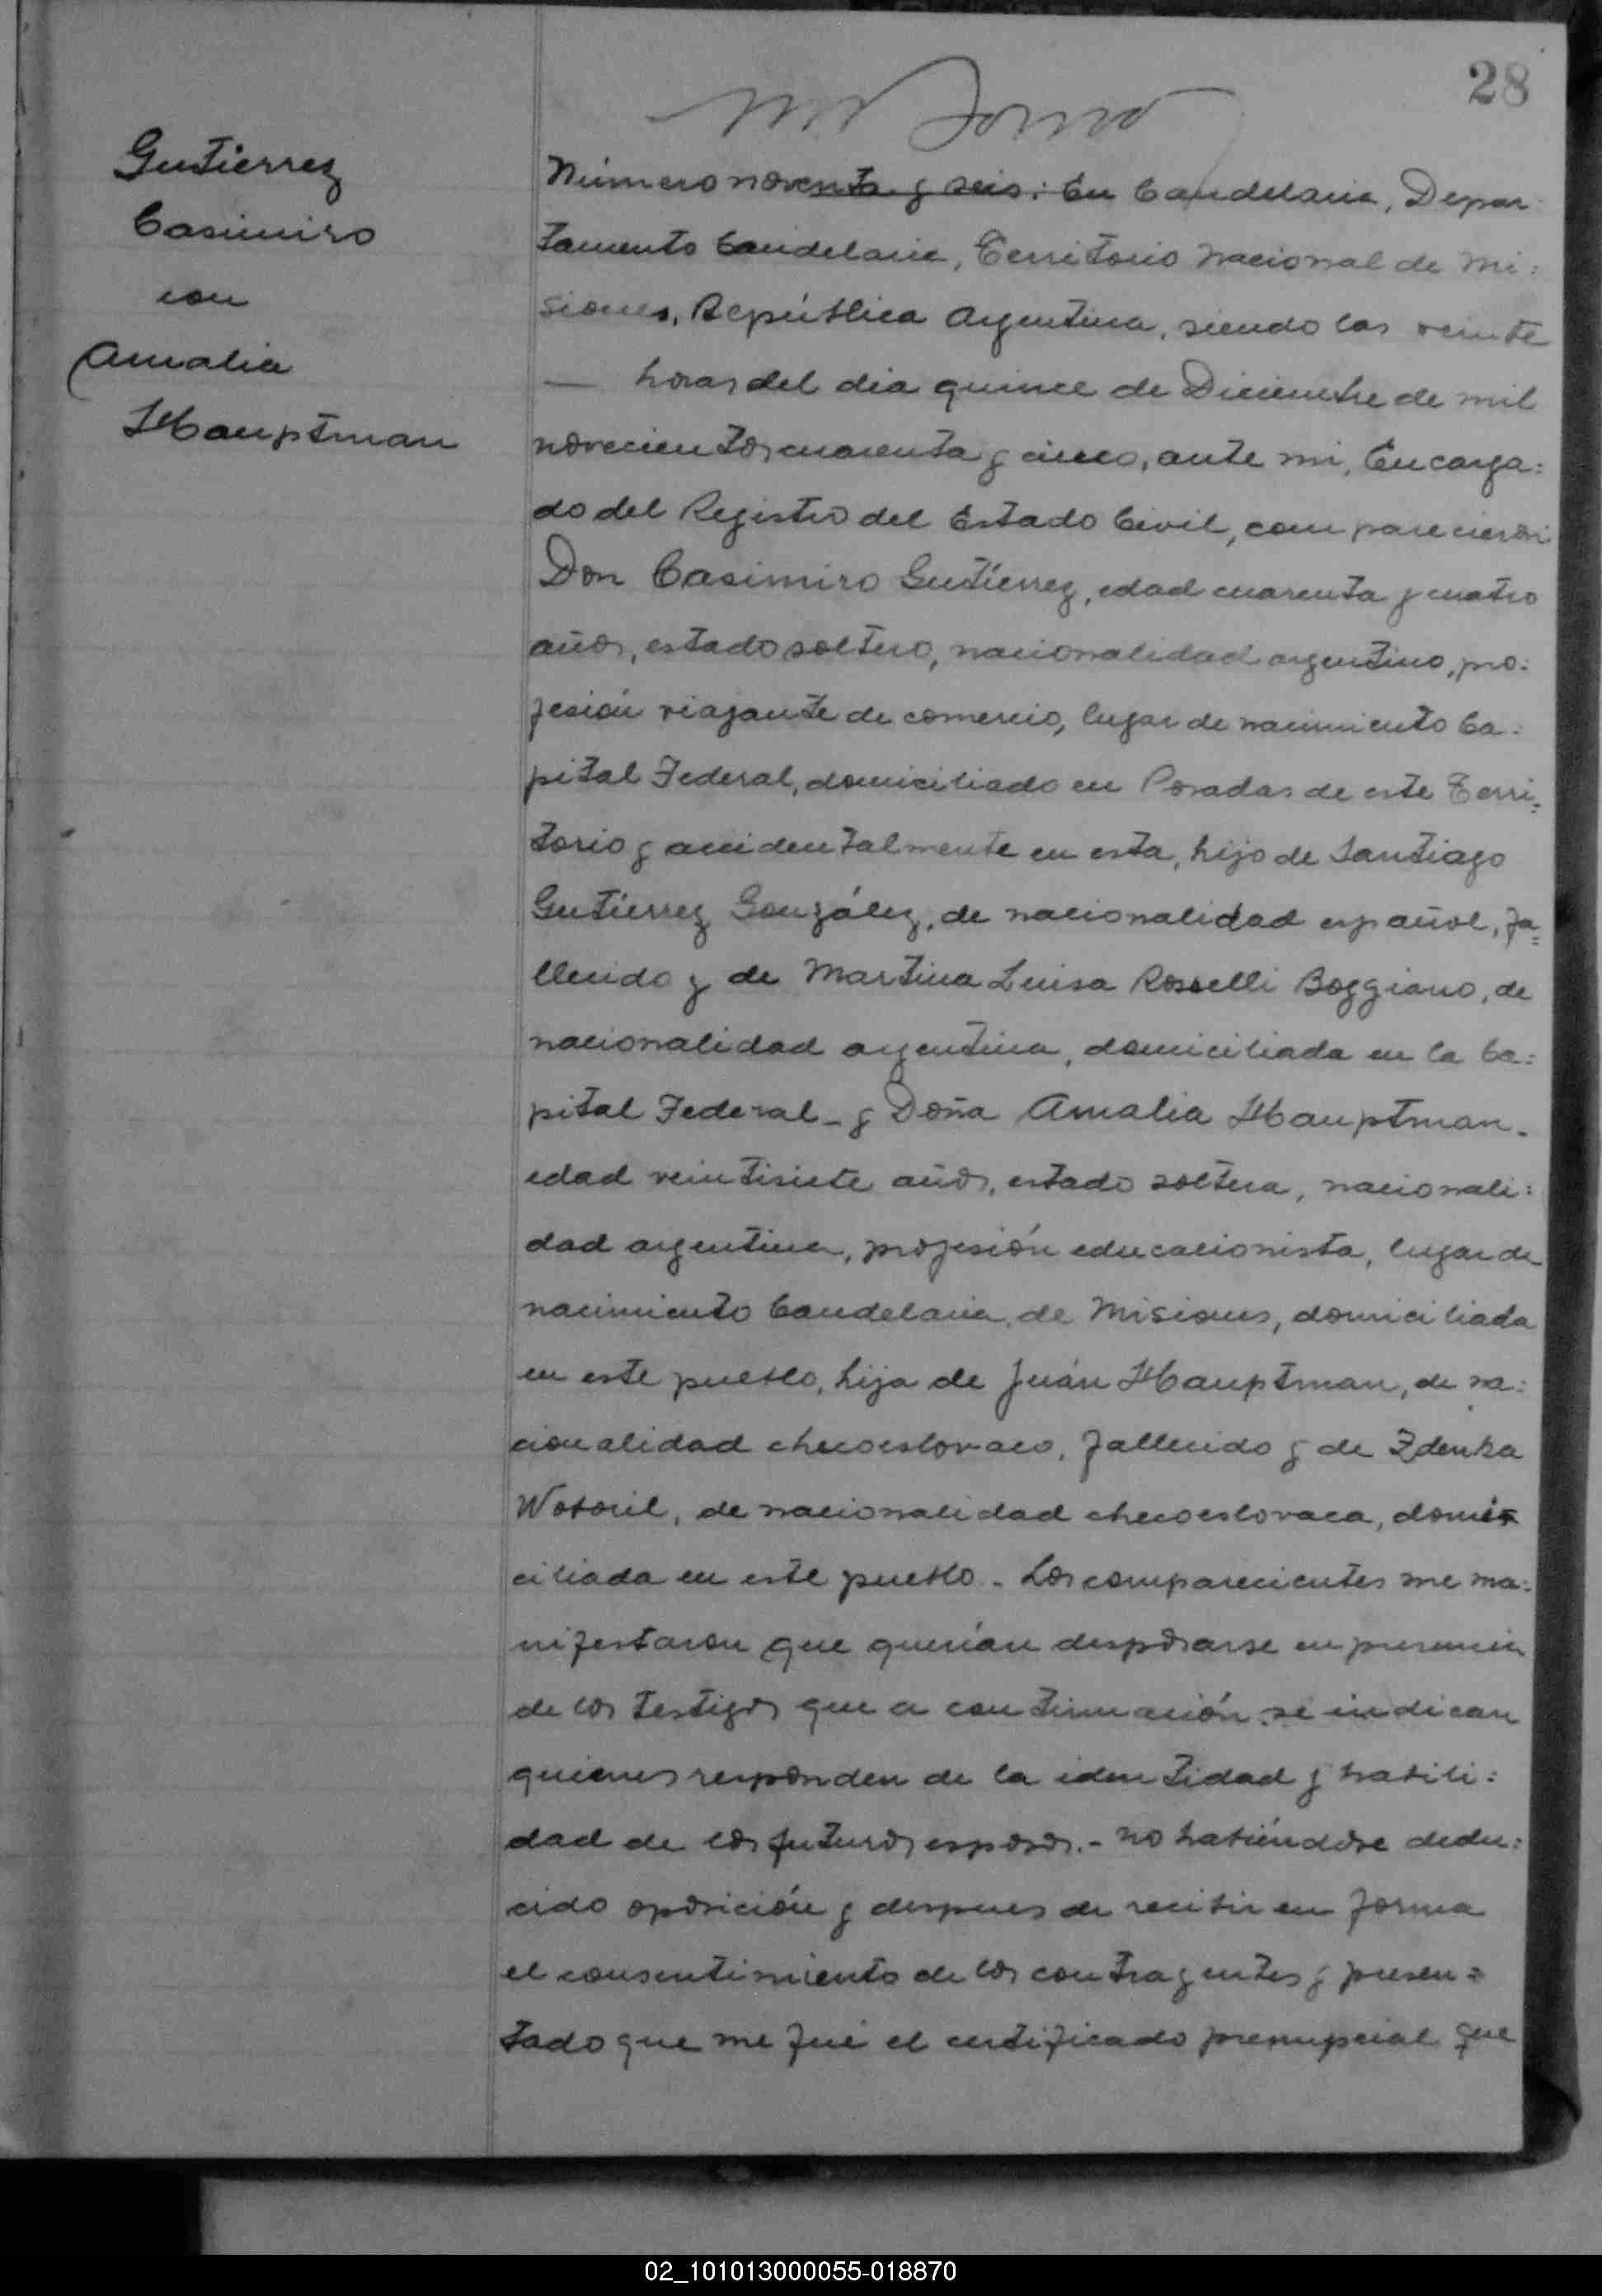 28
Gutierrez
Casimiro
con
Amalia
Hauptman
Número noventa y seis: En Candelaria, Depar:
tamento Candelaria, Territorio Nacional de Mi:
siones, República Argentina, siendo las veinte
— horas del dia quince de Diciembre de mil
novecientos cuarenta y cinco, ante mi, Encarga:
do del Registro del Estado Civil, comparecieron:
Don Casimiro Gutiérrez, edad cuarenta y cuatro
años, estado soltero, nacionalidad argentino, pro:
fesión viajante de comercio, lugar de nacimiento Ca:
pital Federal, domiciliado en Posadas de este Terri:
torio y accidentalmente en esta, hijo de Santiago
Gutiérrez González, de nacionalidad español, fa=
llecido y de Martina Luisa Rosselli Boggiano, de
nacionalidad argentina, domiciliada en la Ca:
pital Federal - y Doña Amalia Hauptman.
edad veintisiete años, estado soltera, nacionali:
dad argentina, profesión educacionista, lugar de
nacimiento Candelaria, de Misiones, domiciliada
en este pueblo, hija de Juán Hauptman, de na:
cionalidad checoeslovaco, fallecido y de Zdenka
de nacionalidad checoeslovaca, domi=
ciliada en este pueblo - Los comparecientes me ma:
nifestaron que querían desposarse en presencia
de los testigos que a continuación se indican
quienes responden de la identidad y habili:
dad de los futuros esposos.- No habiéndose dedu:
cido oposición y despues de recibir en forma
el consentimiento de los contrayentes y presen=
tado que me fué el certificado prenupcial que
02_101013000055-018870